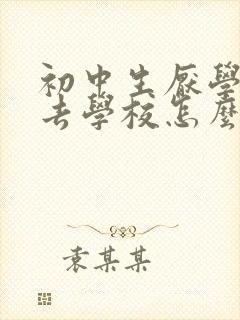 初中生厭學
去學校怎麼
袁某某